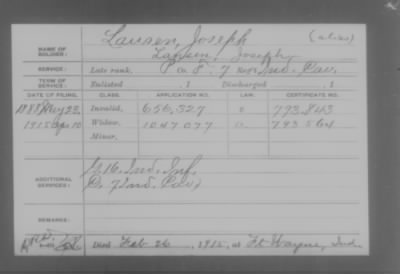 NAME OF SOLDIER: Lausen, Joseph (alias)
Lansen, Joseph
SERVICE: Late rank, P Co 7 Reg't Ind. Cav.
TERM OF SERVICE: Enlisted , 1 Discharged , 1
DATE OF FILING. CLASS. APPLICATION NO. LAW. CERTIFICATE NO.
1888 23 Invalid, 656,327 793,843
1915 10 Widow, 1047 077 793 564
Minor,
ADDITIONAL SERVICES: G 16, Ind. Inf.
7 Ind. Cav)
REMARKS:
Died Feb 26, 1915, at Ft Wayne, Ind.